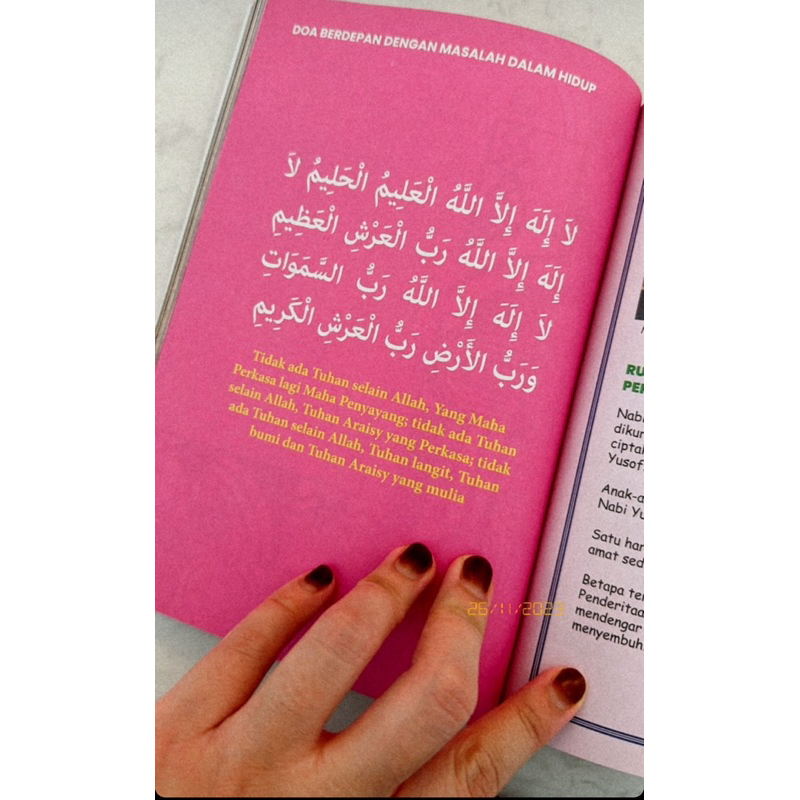 DOA BERDEPAN DENGAN MASALAH DALAM HIDUP
لاَ إِلَهَ إِلاَّ اللَّهُ الْعَلِيمُ الْحَلِيمُ لاَ
إِلَهَ إِلاَّ اللَّهُ رَبُّ الْعَرْشِ الْعَظِيمِ
لاَ إِلَهَ إِلاَّ اللَّهُ رَبُّ السَّمَوَاتِ
وَرَبُّ الأَرْضِ رَبُّ الْعَرْشِ الْكَرِيمِ
Tidak ada Tuhan selain Allah, Yang Maha
Perkasa lagi Maha Penyayang; tidak ada Tuhan
selain Allah, Tuhan Araisy yang Perkasa; tidak
ada Tuhan selain Allah, Tuhan langit, Tuhan
bumi dan Tuhan Araisy yang mulia
Nabi
Yusof
Anak-a
Nabi Yu
Satu har
amat sed
Betapa ter
Penderitaa
mendengar
menyembuh
26/11/2023